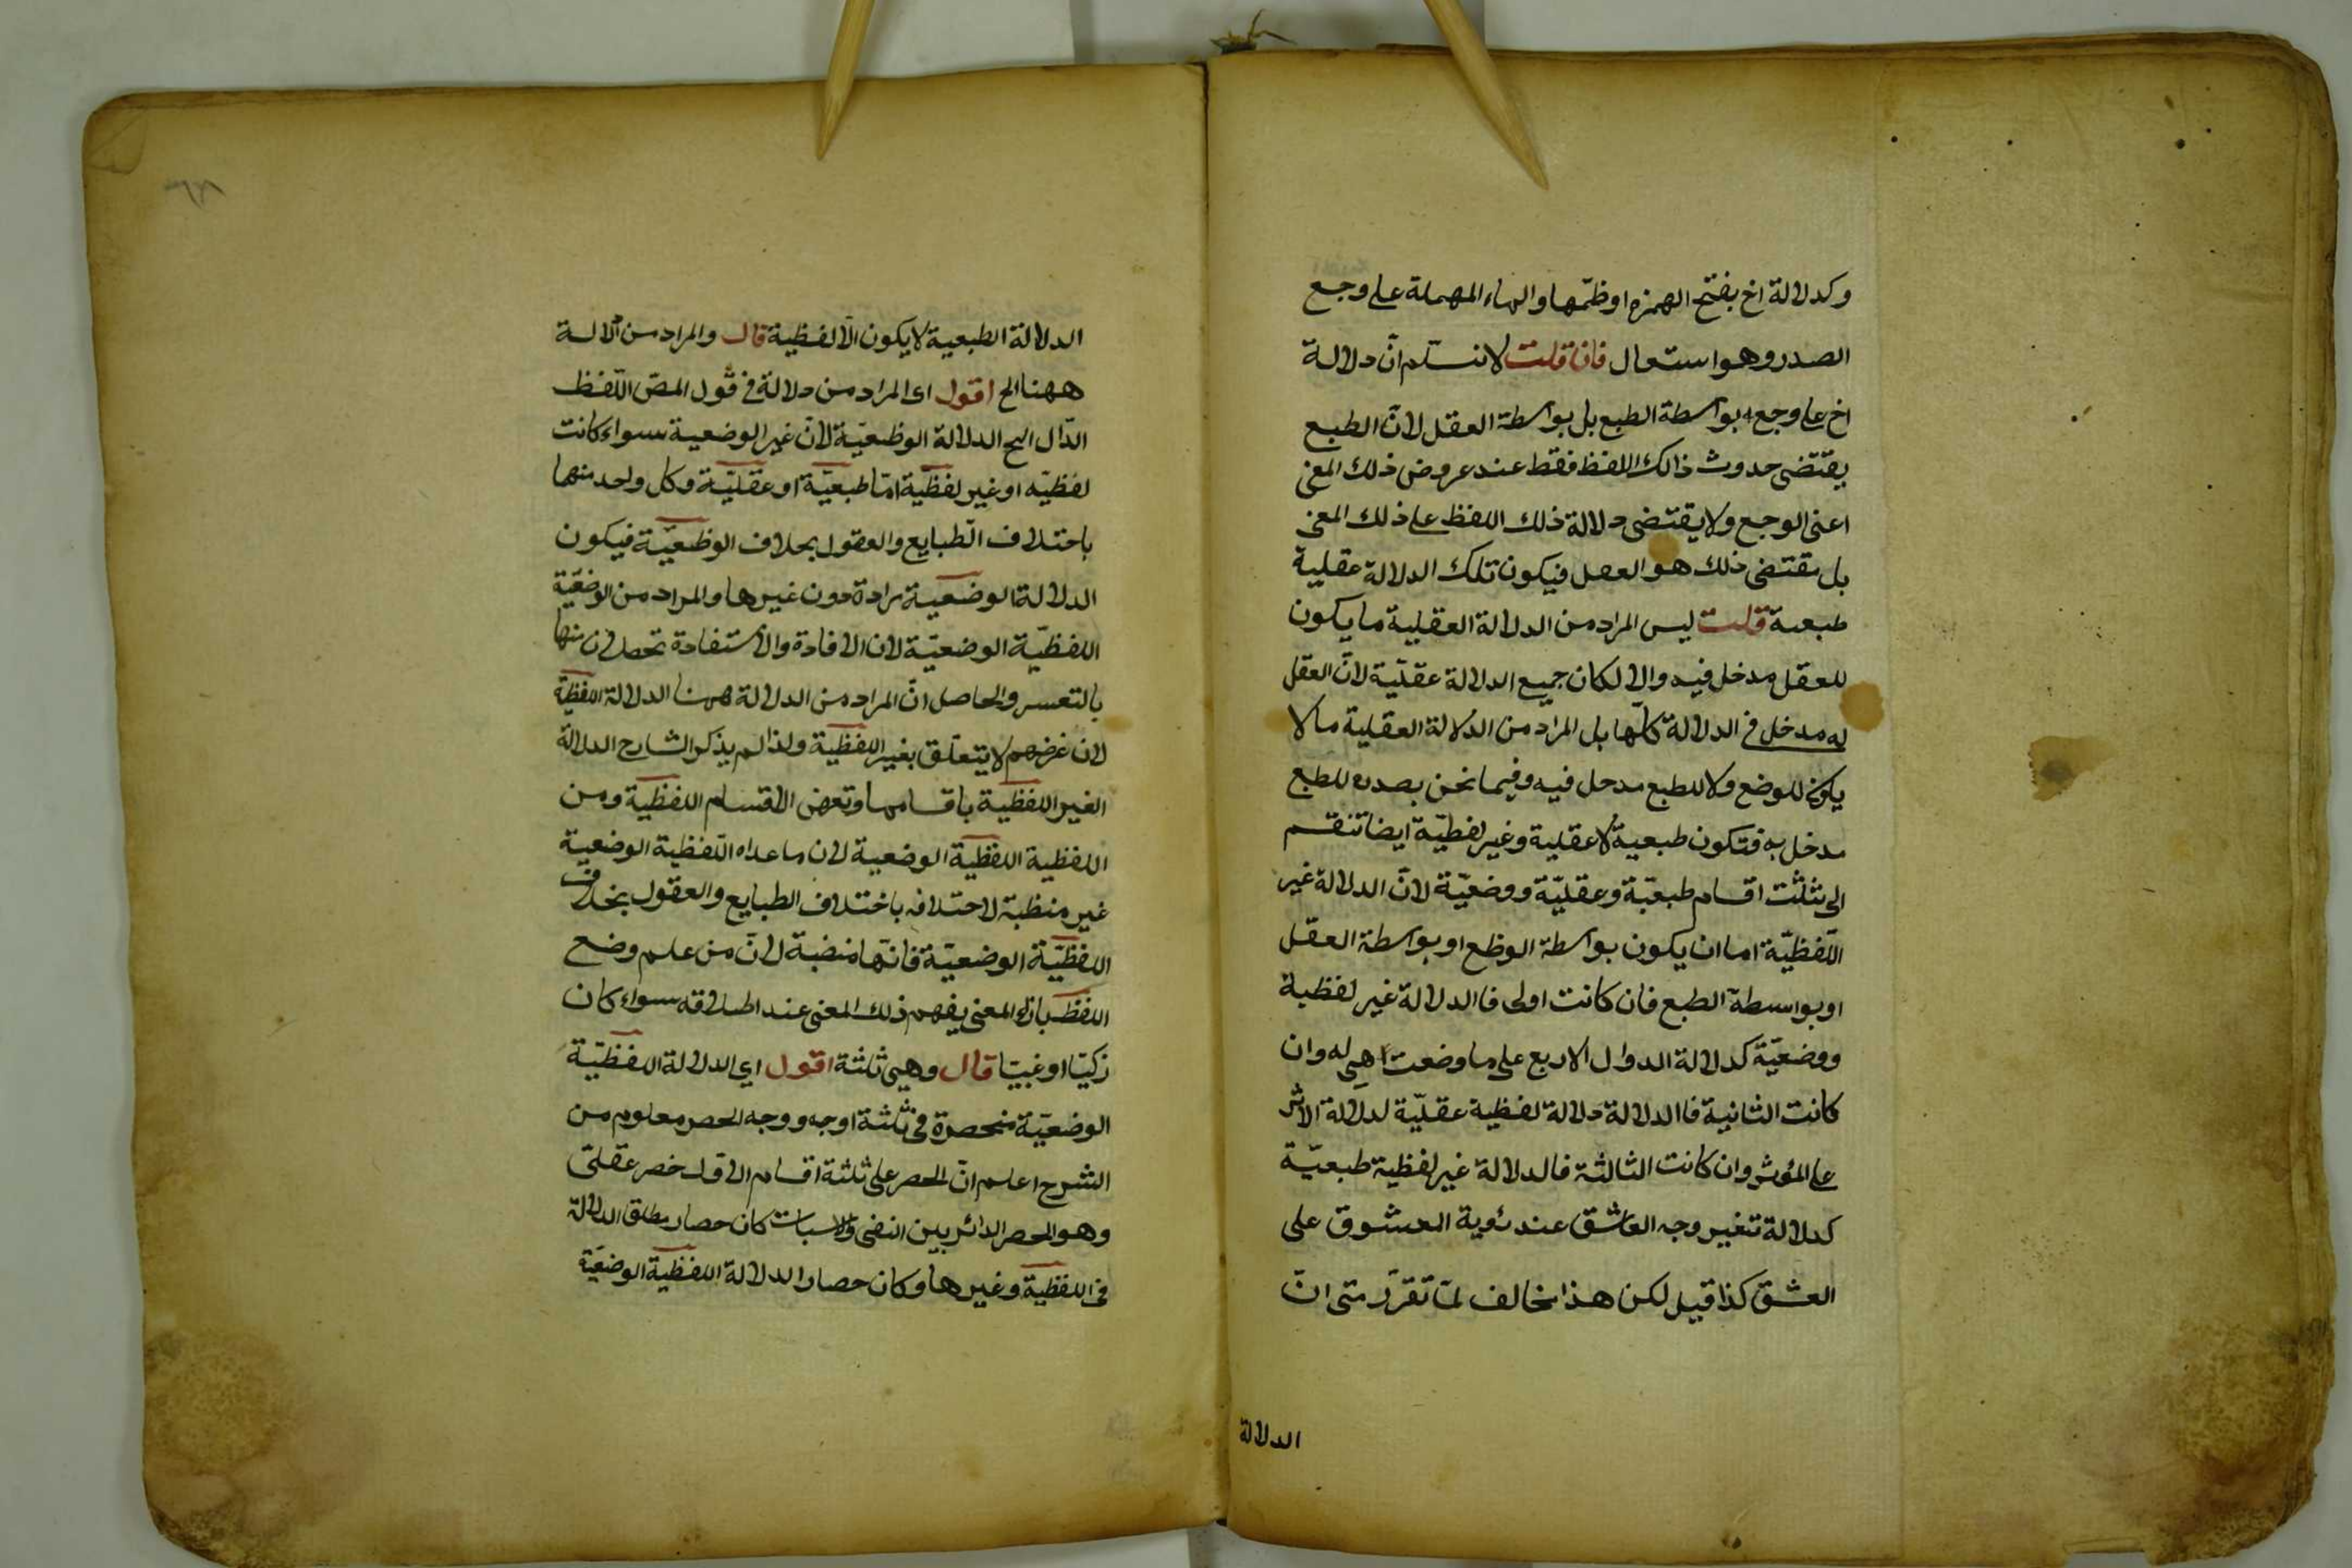 وكدلالة اخ بفتح الهمزه او ظمّها والهاء المهملة على وجع
الصدر وهو استعمال فان قلت لا نسلم انّ دلالة
اخ على وجع بواسطة الطبع بل بواسطة العقل لانّ الطبع
يقتضى حدوث ذالك اللفظ فقط عند عروض ذلك المعنى
اعنى الوجع ولا يقتضى دلالة ذلك اللفظ على ذلك المعنى
بل يقتضى ذلك هو العقل فيكون تلك الدلالة عقلية
طبعية قلت ليس المراد من الدلالة العقلية ما يكون
للعقل مدخل فيه والا لكان جميع الدلالة عقليّة لانّ العقل
له مدخل فى الدلالة كلّها بل المراد من الدلالة العقلية ما لا
يكون للوضع ولا للطبع مدخل فيه وفيما نحن بصدده للطبع
مدخل به فتكون طبعية لا عقلية وغير لفظيّة ايضا تنقسم
الى ثلثت اقسام طبعيّة وعقليّة ووضعيّة لانّ الدلالة غير
اللّفظيّة اما ان يكون بواسطة الوظع او بواسطة العقل
او بواسطة الطبع فان كانت اولى فا الدلالة غير لفظية
ووضعيّة كدلالة الدوال الاربع على ما وضعت هى له وان
كانت الثانية فا الدلالة دلالة لفظية عقليّة لدلالة الاثر
على المؤثر وان كانت الثالثة فالدلالة غير لفظية طبعيّة
كدلالة تغير وجه العاشق عند رؤية المعشوق على
العشق كذا قيل لكن هذا مخالف لمّا تقرّر متى انّ
الدلالة
الدلالة الطبعية لا يكون الّا لفظية قال والمراد من الالة
ههنا الخ اقول اى المراد من دلالة فى قول المص اللّفظ
الدّال الخ الدلالة الوظعيّة لانّ غير الوضعية سواء كانت
لفظيّه او غير لفظيّة امّا طبعيّة او عقليّة وكل واحد منهما
باختلاف الطّبايع والعقول بخلاف الوظعيّة فيكون
الدلالة الوضعية مرادة دون غيرها والمراد من الوضعيّة
اللفظيّة الوضعيّة لان الافادة والاستفادة تحصلان منها
بالتعسر والحاصل انّ المراد من الدلالة ههنا الدلالة اللفظيّة
لان غرضهم لا يتعلّق بغير اللفظيّة ولذا لم يذكر الشارح الدلالة
الغير اللفظيّة باقسامها وتعرض الاقسام اللفظيّة ومن
اللفظية اللفظيّة الوضعية لان ما عداه اللّفظية الوضعية
غير منظبة لاختلافه باختلاف الطبايع والعقول بخلاف
اللفظيّة الوضعيّة فانّها منضبة لانّ من علم وضع
اللفظ بازاء المعنى يفهم ذلك المعنى عند اطلاقه سواء كان
زكيّا او غبيّا قال وهى ثلثة اقول اى الدلالة اللفظيّة
الوضعيّة منحصرة فى ثلثة اوجه ووجه الحصر معلوم من
الشرح اعلم انّ الحصر على ثلثة اقسام الاول حصر عقلىّ
وهو الحصر الدائر بين النفى والاسبات كان حصار مطلق الدلالة
فى اللفظيّة وغيرها وكان حصار الدلالة اللفظيّة الوضعيّة